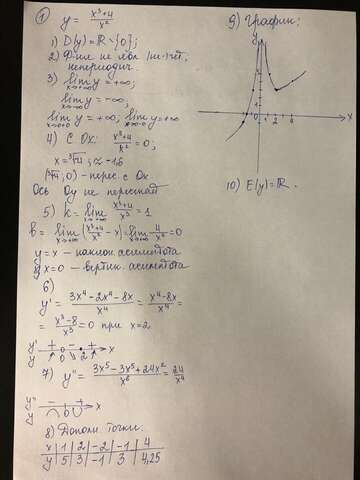 ① y = (x³+4)/x²
1) D(y)=ℝ∖{0};
2) Ф-ия не явл /не/чет,
непериодич.
3) lim y = +∞,
x→+∞
lim y = -∞,
x→-∞
lim y = +∞, lim y = +∞
x→0+0 x→0-0
4) С Ох: (x³+4)/x² = 0,
x = ∛4; ≈ -1,6
(∛4; 0) - перес. с Ох
Ось Оу не пересекает
5) k = lim (x³+4)/x³ = 1
x→∞
b = lim ((x³+4)/x² - x) = lim 4/x² = 0
x→∞ x→∞
y = x - наклон. асимптота
x = 0 - вертик. асимптота
6)
y' = (3x⁴-2x⁴-8x)/x⁴ = (x⁴-8x)/x⁴ =
= (x³-8)/x³ = 0 при x=2
y' + 0 - + x
y 2
7) y'' = (3x⁵-3x⁵+24x²)/x⁶ = 24/x⁴
y'' - + x
y 0
8) Дополн точки.
x | 1 | 2 | -2 | -1 | 4
y | 5 | 3 | -1 | 3 | 4,25
9) График:
y
x
10) E(y)=ℝ.